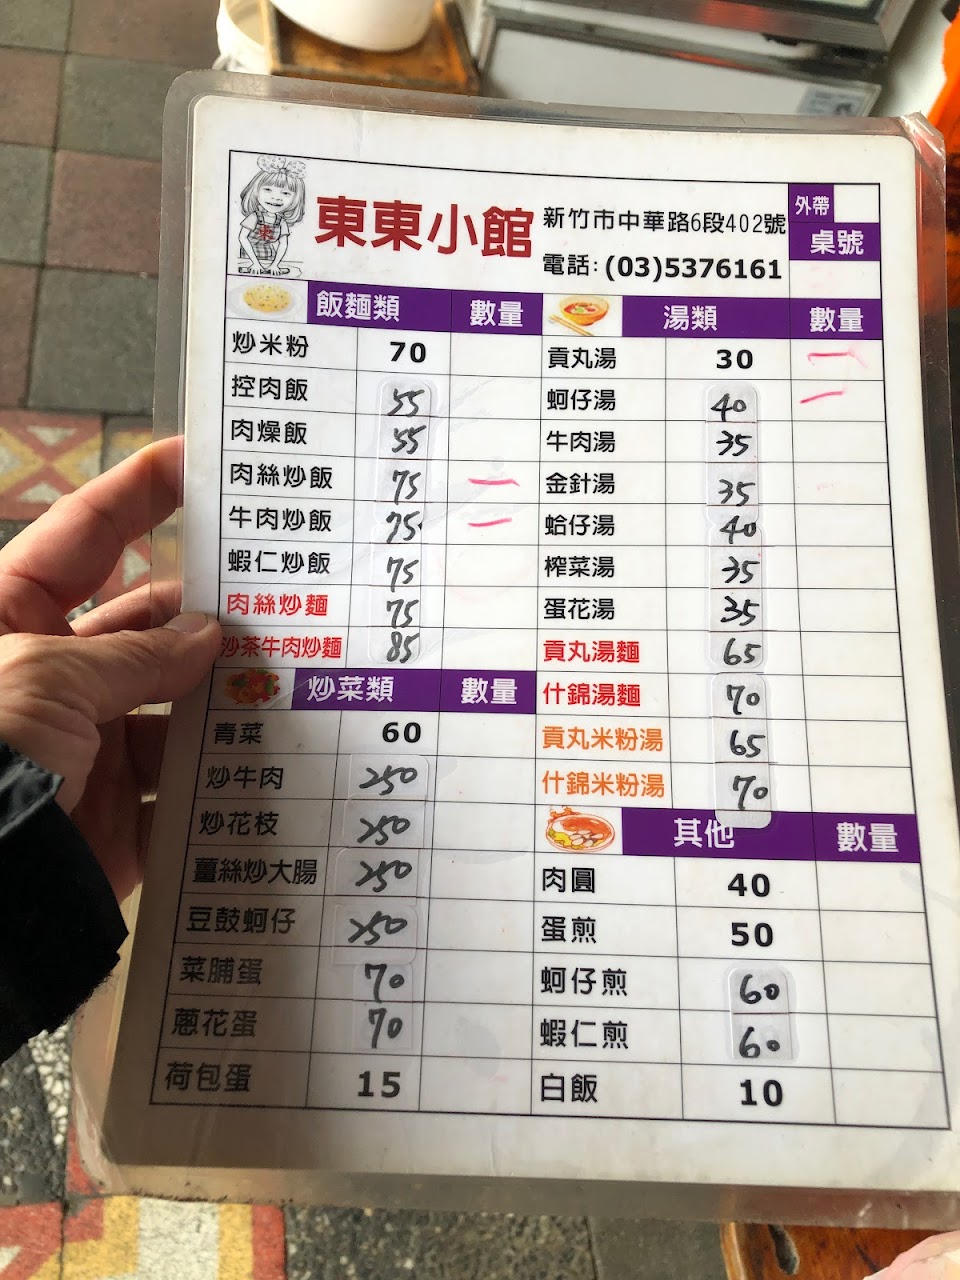 東東小館
新竹市中華路6段402號
電話:(03)5376161
外帶
桌號
飯麵類 數量
炒米粉 70
控肉飯 55
肉燥飯 55
肉絲炒飯 75 一
牛肉炒飯 75 一
蝦仁炒飯 75
肉絲炒麵 75
沙茶牛肉炒麵 85
炒菜類 數量
青菜 60
炒牛肉 250
炒花枝 250
薑絲炒大腸 250
豆鼓蚵仔 250
菜脯蛋 70
蔥花蛋 70
荷包蛋 15
湯類 數量
貢丸湯 30 一
蚵仔湯 40 一
牛肉湯 35
金針湯 35
蛤仔湯 40
榨菜湯 35
蛋花湯 35
貢丸湯麵 65
什錦湯麵 70
貢丸米粉湯 65
什錦米粉湯 70
其他 數量
肉圓 40
蛋煎 50
蚵仔煎 60
蝦仁煎 60
白飯 10